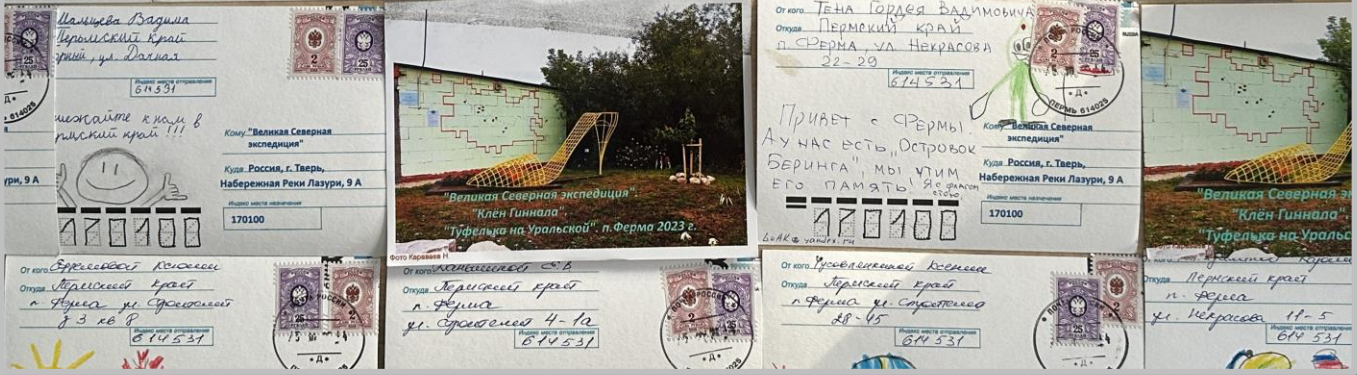 Мальцева Вадима
Пермский край
ул. Дачная
Индекс места отправления
614531
приезжайте к нам в
Пермский край !!!
Кому "Великая Северная
экспедиция"
Куда Россия, г. Тверь,
Набережная Реки Лазури, 9 А
Индекс места назначения
170100
2
25
ури, 9 А
25
"Великая Северная экспедиция".
"Клён Гиннала".
"Туфелька на Уральской". п.Ферма 2023 г.
Фото Караваев Н
От кого Тена Гордея Вадимовича
Откуда Пермский край
п. Ферма, ул Некрасова
22-29
Индекс места отправления
614531
ПЕРМЬ 614025
Привет с Фермы.
А у нас есть "Островок
Беринга", мы чтим
его память! Я с флагом
стою,
Кому "Великая Северная
экспедиция"
Куда Россия, г. Тверь,
Набережная Реки Лазури, 9 А
Индекс места назначения
170100
"Великая Северная э
"Клён Гиннала"
"Туфелька на Уральс
От кого Ефремовой Ксении
Откуда Пермский край
п. Ферма ул Строителей
д 3 кв 8
Индекс места отправления
614531
25
2
От кого Е.В
Откуда Пермский край
п. Ферма
ул. Строителей 4-1а
Индекс места отправления
614531
2
25
От кого Ксении
Откуда Пермский край
п. Ферма ул. Строителей
28-45
Индекс места отправления
614531
25
2
Откуда Пермский край
п. Ферма
ул. Некрасова 11-5
Индекс места отправления
614531